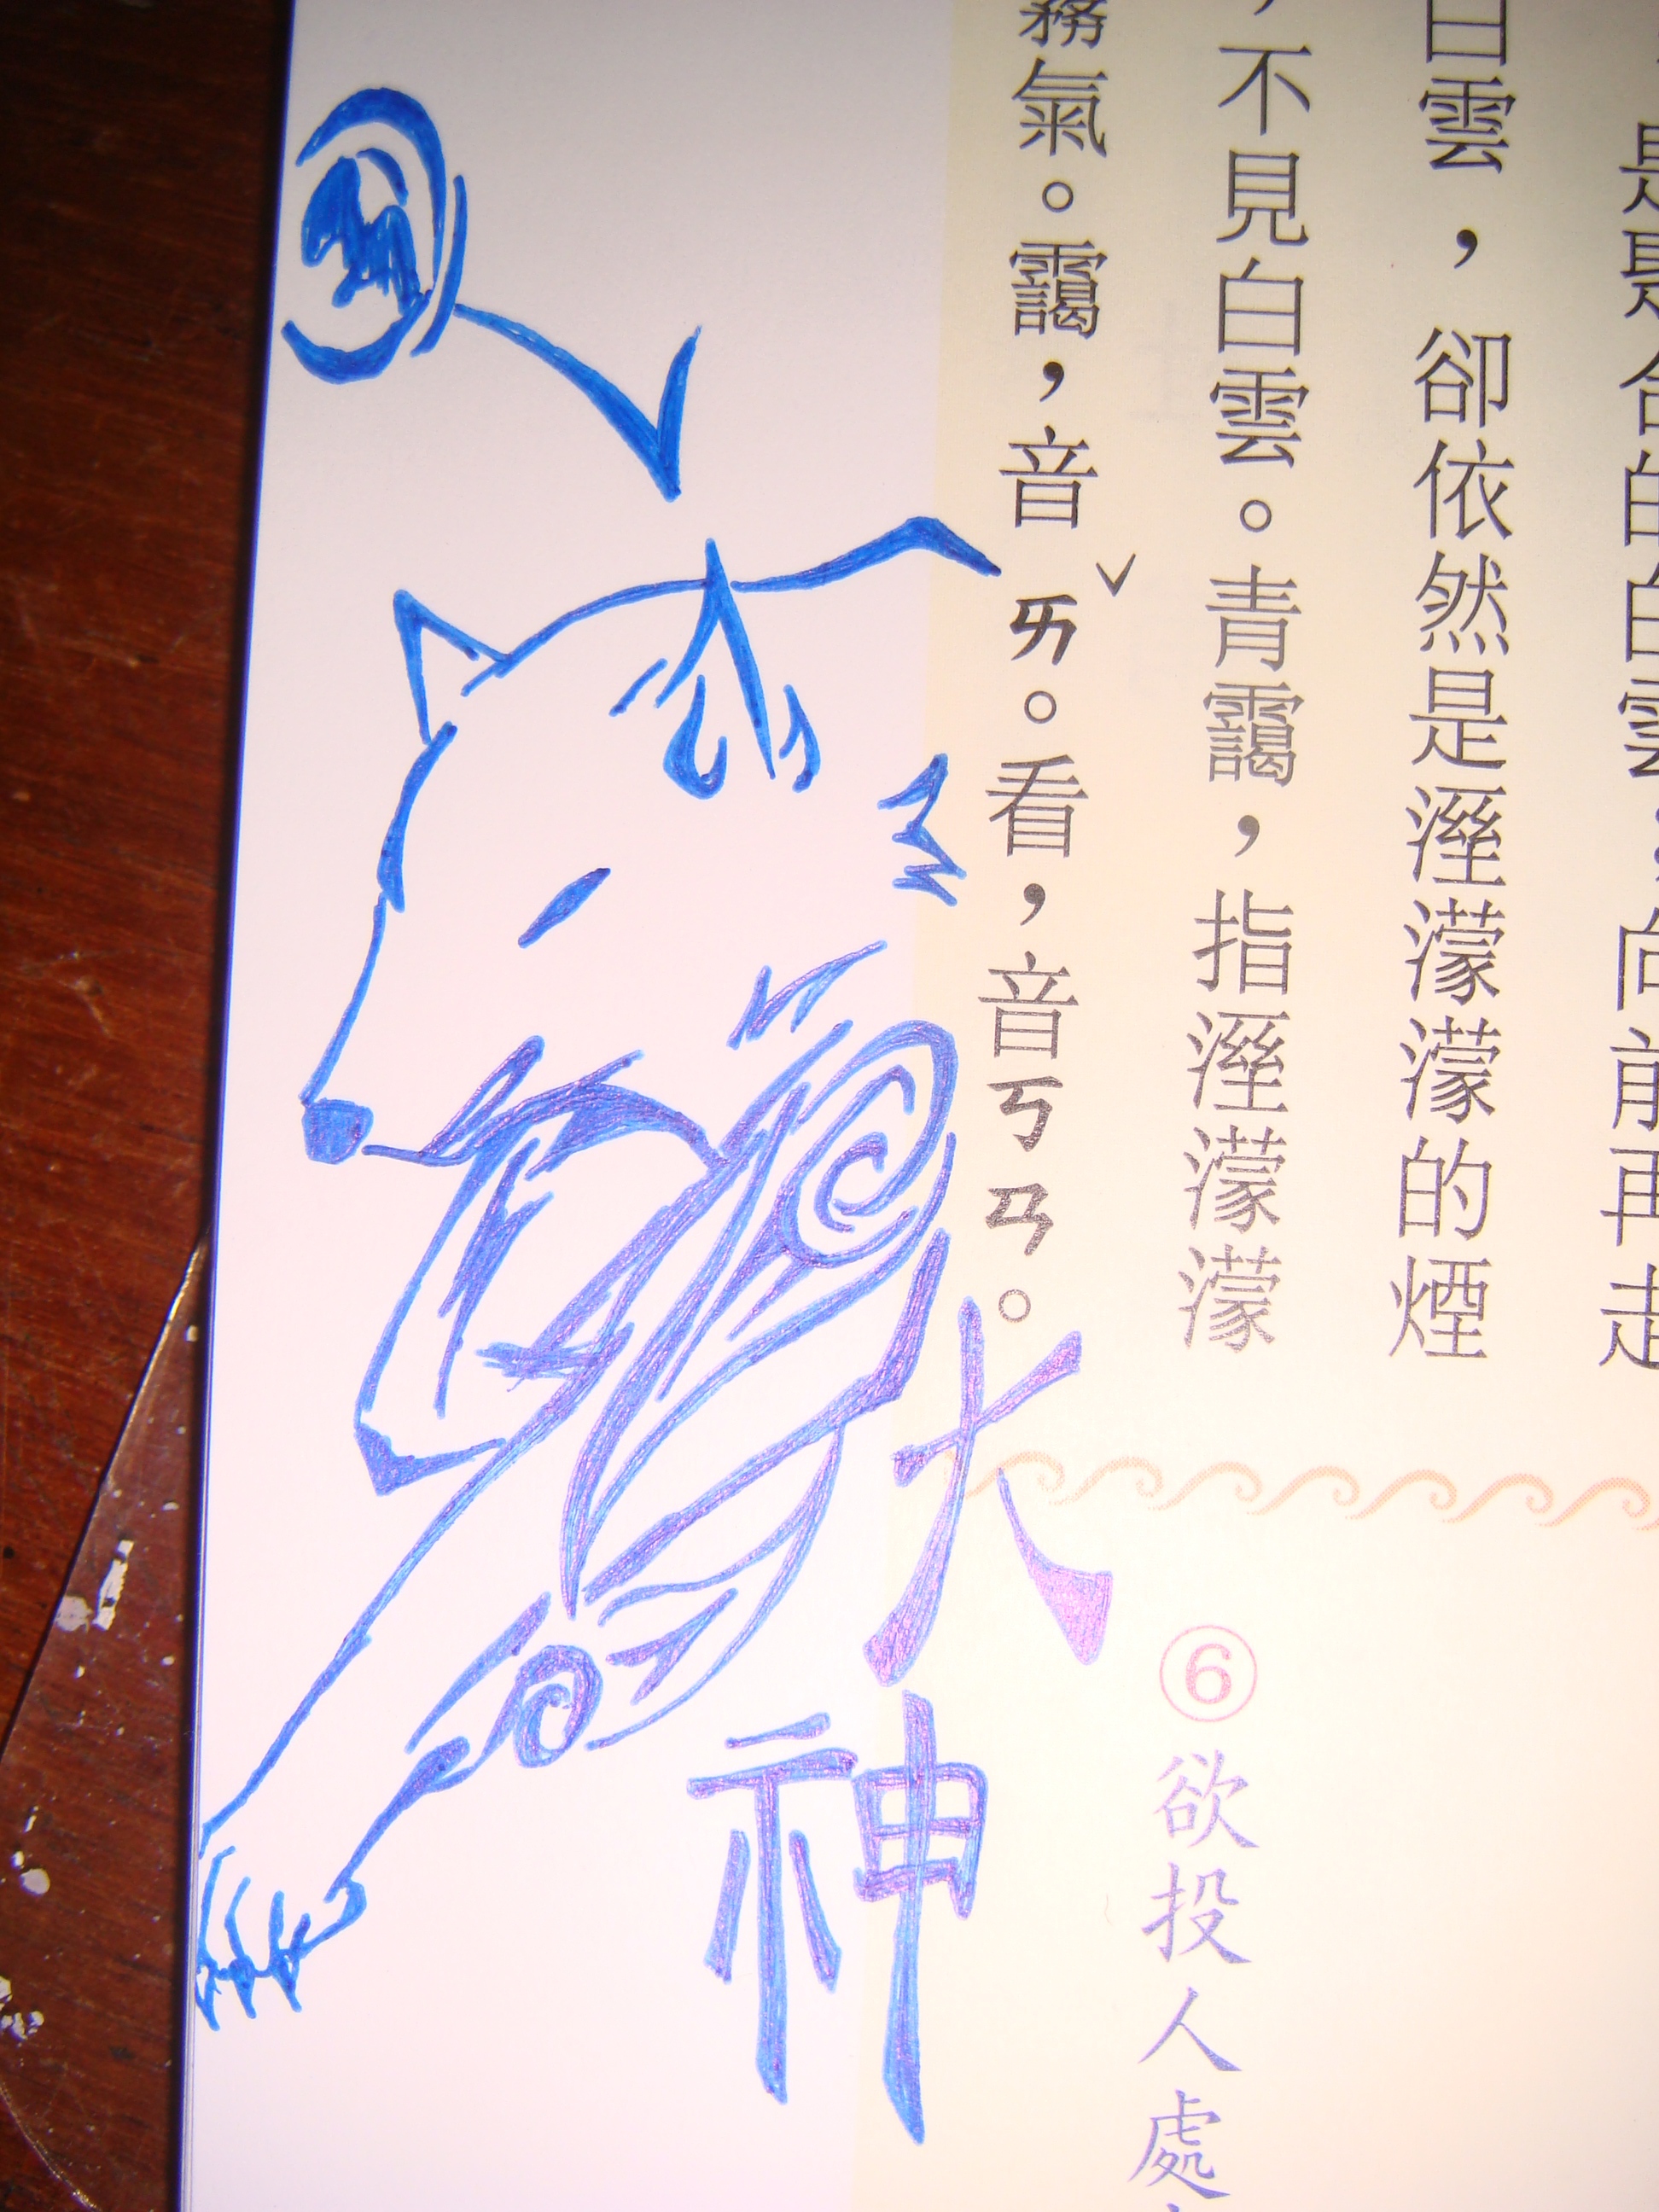 是聚合的白雲；向前再走
白雲，卻依然是溼濛濛的煙
，不見白雲。青靄，指溼濛濛
霧氣。靄，音ㄞˇ。看，音ㄎㄢ。
⑥欲投人處
大神